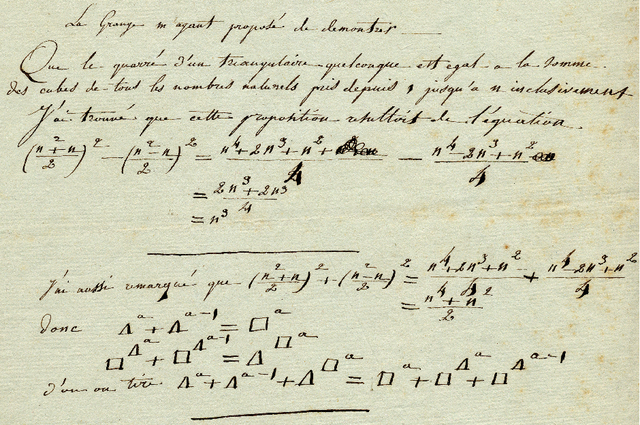 La Grange m'ayant proposé de demontrer
Que le quarré d'un triangulaire quelconque est egal a la somme
des cubes de tous les nombres naturels pris depuis 1 jusqu'a n inclusivement
J'ai trouvé que cette proposition resultoit de l'équation
(n²+n/2)² - (n²-n/2)² = n⁴+2n³+n²+ / 4 - n⁴-2n³+n² / 4
= 2n³+2n³ / 4
= n³
J'ai aussi remarqué que (n²+n/2)² + (n²-n/2)² = n⁴+2n³+n² / 4 + n⁴-2n³+n² / 4
= n⁴+n² / 2
donc Δᵃ + Δᵃ⁻¹ = □ᵃ
□^Δᵃ + □^Δᵃ⁻¹ = Δ^□ᵃ
d'ou on tire Δᵃ + Δᵃ⁻¹ + Δ^□ᵃ = □ᵃ + □^Δᵃ + □^Δᵃ⁻¹